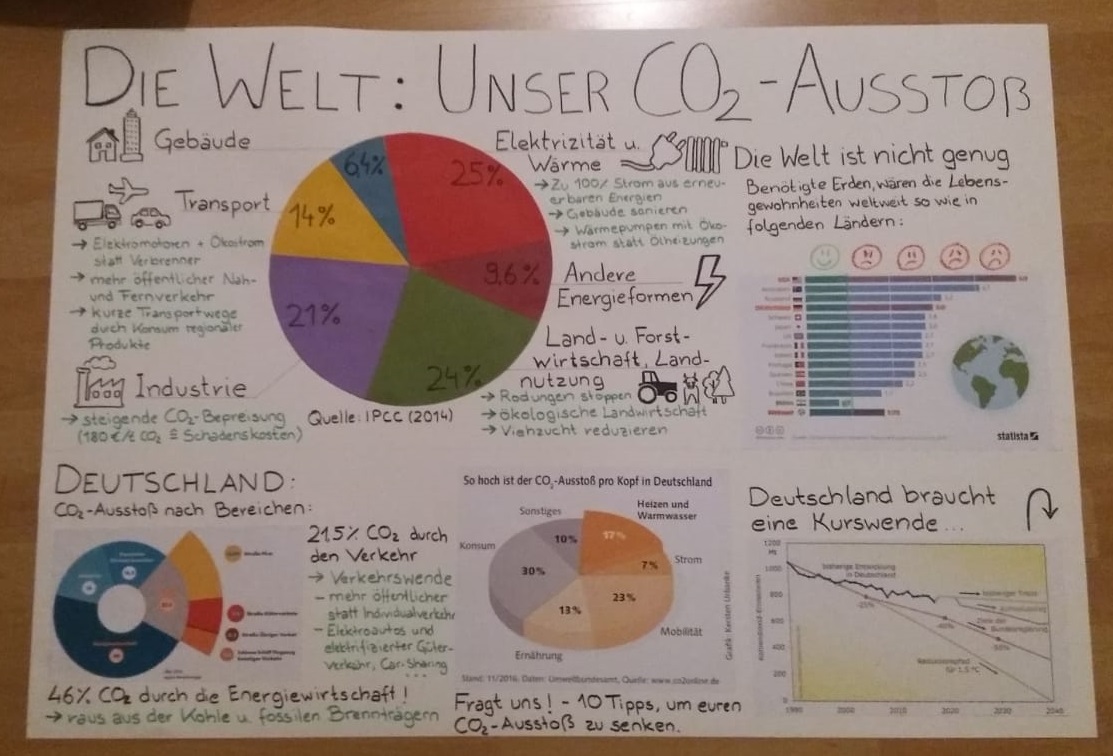 DIE WELT: UNSER CO₂-AUSSTOß
Gebäude
Transport
→ Elektromotoren + Ökostrom
statt Verbrenner
→ mehr öffentlicher Nah-
und Fernverkehr
→ kurze Transportwege
durch Konsum regionaler
Produkte
Industrie
→ steigende CO₂-Bepreisung
(180 €/t CO₂ ≙ Schadenskosten)
6,4%
25%
14%
9,6%
21%
24%
Quelle: IPCC (2014)
Elektrizität u.
Wärme
→ Zu 100% Strom aus erneu-
erbaren Energien
→ Gebäude sanieren
→ Wärmepumpen mit Öko-
strom statt Ölheizungen
Andere
Energieformen
Land- u. Forst-
wirtschaft, Land-
nutzung
→ Rodungen stoppen
→ ökologische Landwirtschaft
→ Viehzucht reduzieren
Die Welt ist nicht genug
Benötigte Erden, wären die Lebens-
gewohnheiten weltweit so wie in
folgenden Ländern:
statista
DEUTSCHLAND:
CO₂-Ausstoß nach Bereichen:
21,5% CO₂ durch
den Verkehr
→ Verkehrswende
– mehr öffentlicher
statt Individualverkehr
– Elektroautos und
elektrifizierter Güter-
verkehr, Car-Sharing
...
46% CO₂ durch die Energiewirtschaft!
→ raus aus der Kohle u. fossilen Brennträgern
So hoch ist der CO₂-Ausstoß pro Kopf in Deutschland
Sonstiges
Heizen und
Warmwasser
Konsum
10%
17%
Strom
7%
30%
23%
13%
Mobilität
Ernährung
Grafik: Karsten Urbanke
Stand: 11/2016, Daten: Umweltbundesamt, Quelle: www.co2online.de
Fragt uns! - 10 Tipps, um euren
CO₂-Ausstoß zu senken.
Deutschland braucht
eine Kurswende...
1200
Mt
1000
800
600
400
200
0
bisherige Entwicklung
in Deutschland
1990
2000
2010
2020
2030
2040